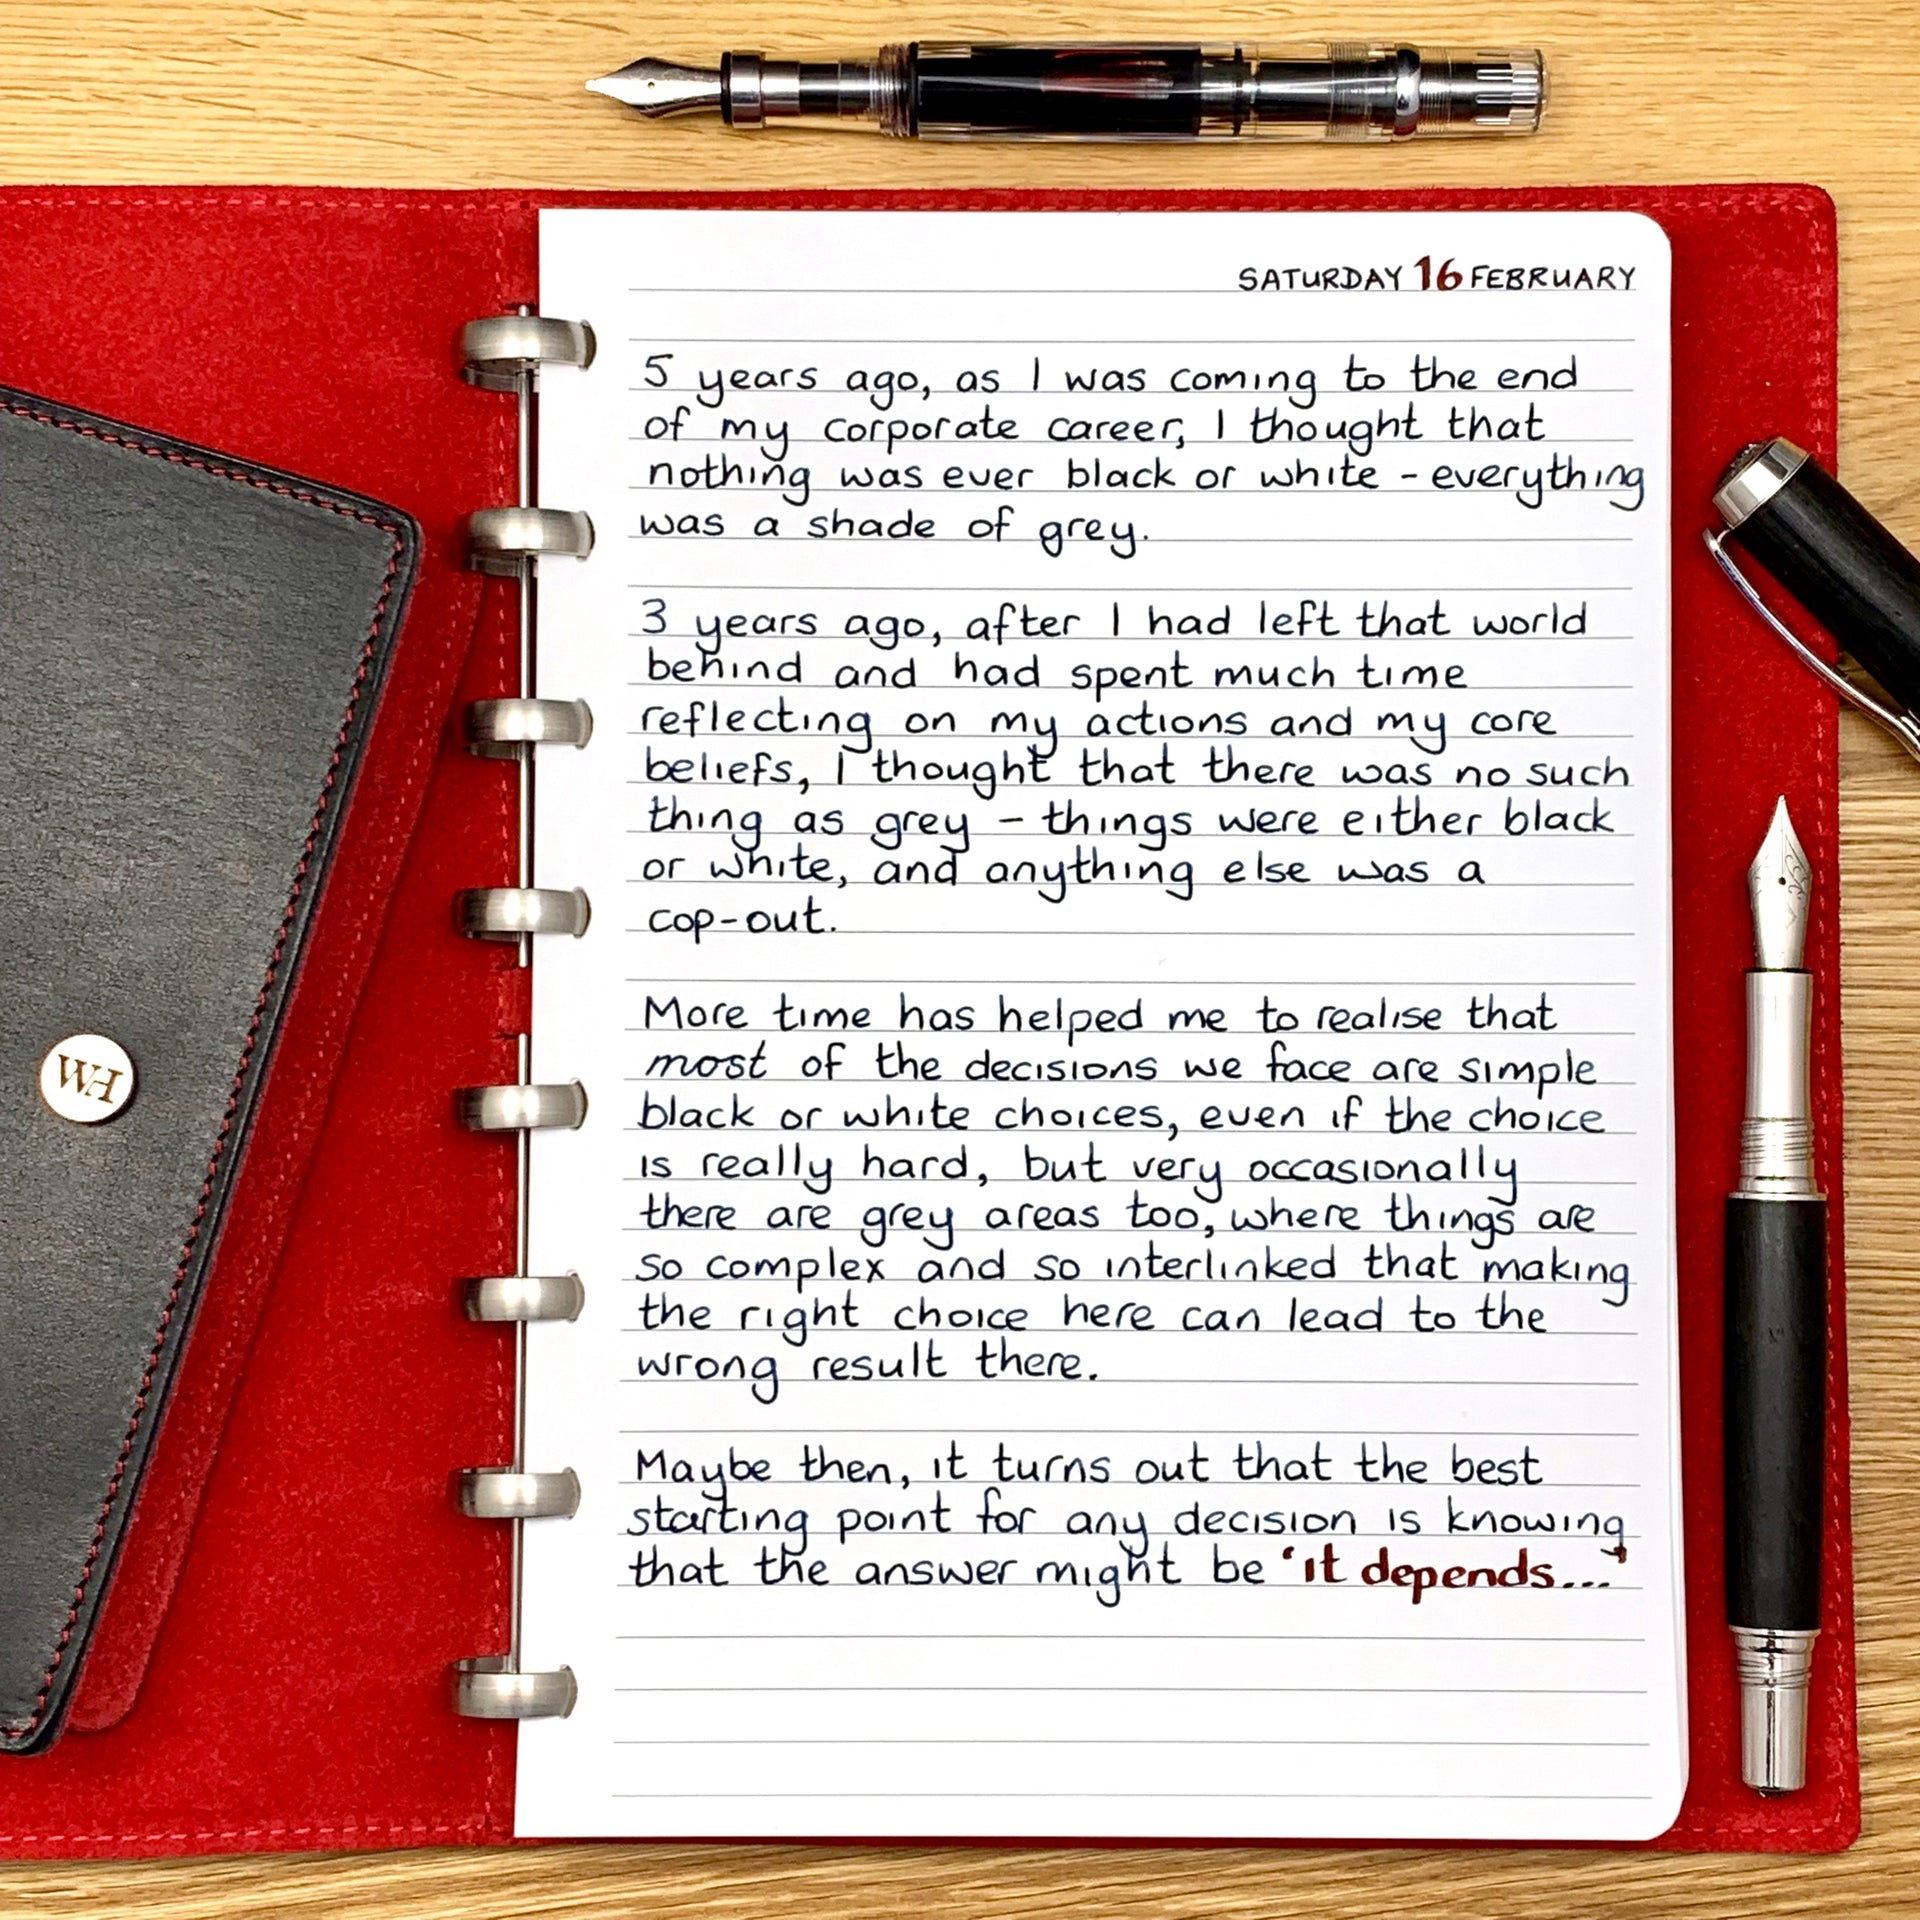 SATURDAY 16 FEBRUARY
5 years ago, as I was coming to the end
of my corporate career, I thought that
nothing was ever black or white - everything
was a shade of grey.
3 years ago, after I had left that world
behind and had spent much time
reflecting on my actions and my core
beliefs, I thought that there was no such
thing as grey - things were either black
or white, and anything else was a
cop-out.
More time has helped me to realise that
most of the decisions we face are simple
black or white choices, even if the choice
is really hard, but very occasionally
there are grey areas too, where things are
so complex and so interlinked that making
the right choice here can lead to the
wrong result there.
Maybe then, it turns out that the best
starting point for any decision is knowing
that the answer might be 'it depends...'
WH